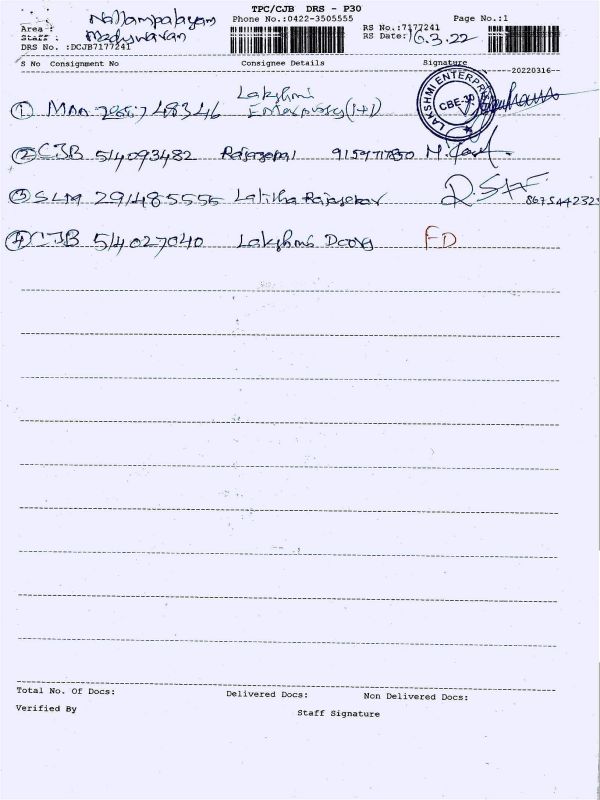 TPC/CJB DRS - P30
Area : Nallampalayam Phone No.:0422-3505555 RS No.:7177241 Page No.:1
Staff : RS Date: 16.3.22
DRS No. :DCJB7177241
S No Consignment No Consignee Details Signature
20220316
① MAA Lakshmi Enterprises (1+1) LAKSHMI ENTERPRISES CBE-30
② CJB 514093482 Rajagopal
③ SLM 291485555 Lalitha Rajasekar
④ CJB 514027040 Lakshmi Doors FD
Total No. Of Docs: Delivered Docs: Non Delivered Docs:
Verified By Staff Signature